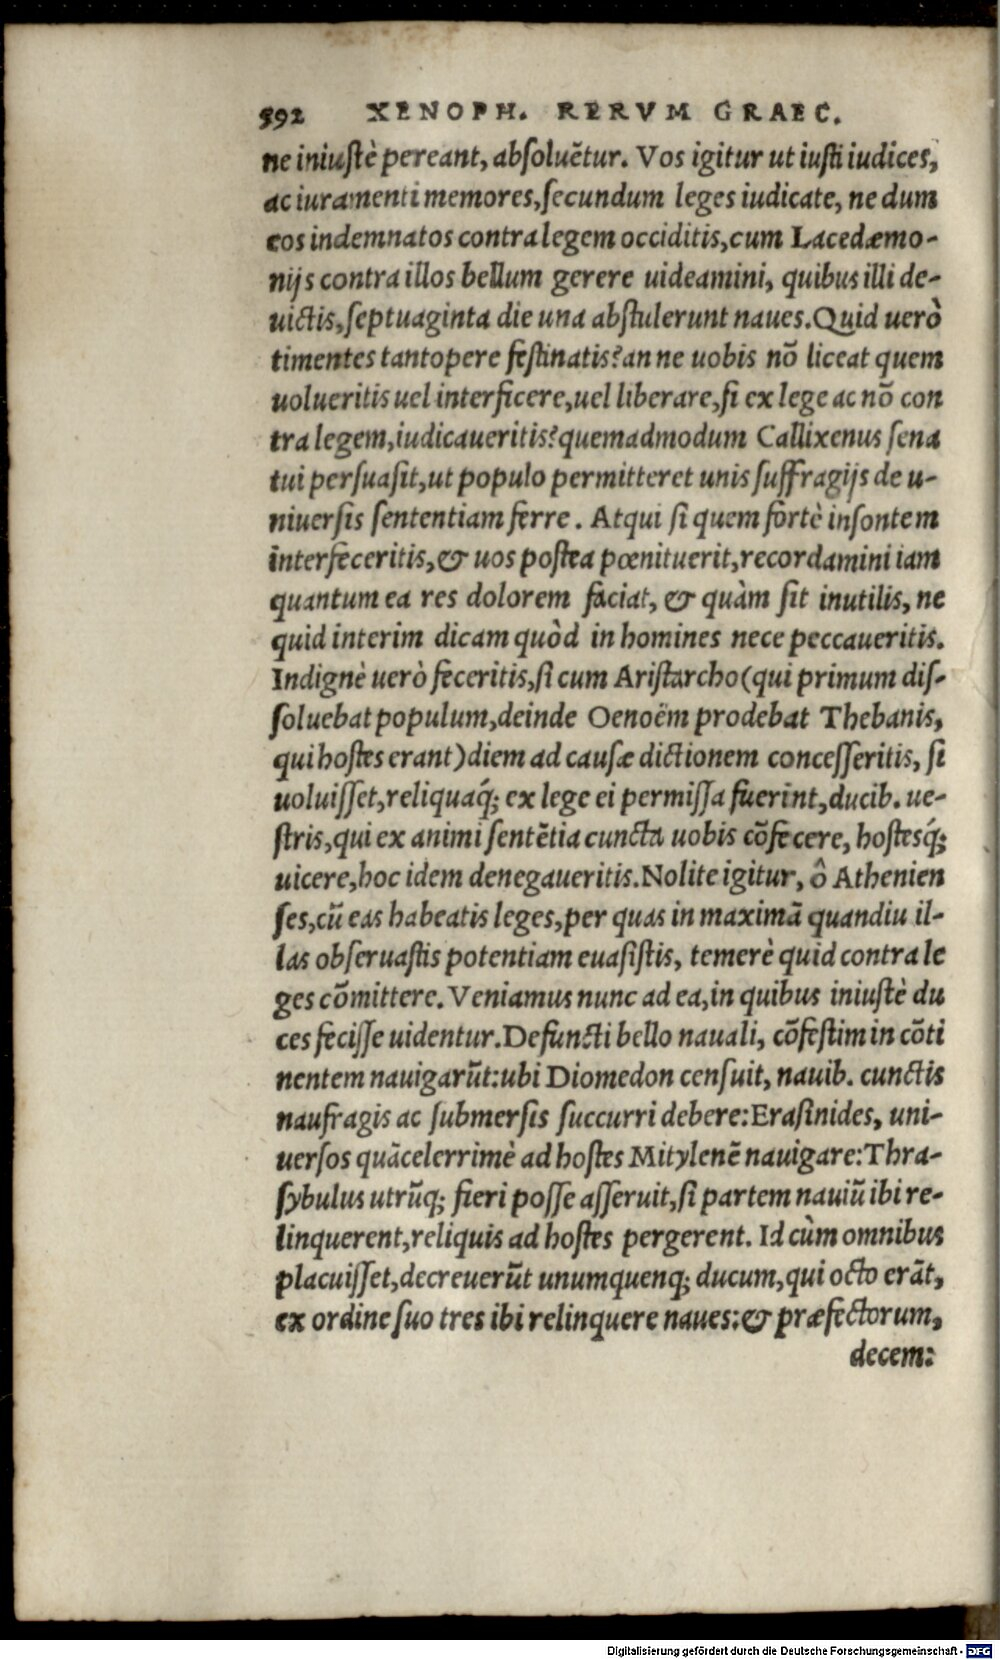 592 XENOPH. RERVM GRAEC.
ne iniustè pereant, absoluētur. Vos igitur ut iusti iudices,
ac iuramenti memores, secundum leges iudicate, ne dum
eos indemnatos contra legem occiditis, cum Lacedæmo-
nijs contra illos bellum gerere uideamini, quibus illi de-
uictis, septuaginta die una abstulerunt naues. Quid uerò
timentes tantopere festinatis? an ne uobis nō liceat quem
uolueritis uel interficere, uel liberare, si ex lege ac nō con
tra legem, iudicaueritis? quemadmodum Callixenus sena
tui persuasit, ut populo permitteret unis suffragijs de u-
niuersis sententiam ferre. Atqui si quem fortè insontem
interfeceritis, & uos postea pœnituerit, recordamini iam
quantum ea res dolorem faciat, & quàm sit inutilis, ne
quid interim dicam quòd in homines nece peccaueritis.
Indignè uerò feceritis, si cum Aristarcho (qui primum dis-
soluebat populum, deinde Oenoëm prodebat Thebanis,
qui hostes erant) diem ad causæ dictionem concesseritis, si
uoluisset, reliquaq́; ex lege ei permissa fuerint, ducib. ue-
stris, qui ex animi sentētia cuncta uobis cōfecere, hostesq́;
uicere, hoc idem denegaueritis. Nolite igitur, ô Athenien
ses, cū eas habeatis leges, per quas in maximā quandiu il-
las obseruastis potentiam euasistis, temerè quid contra le
ges cōmittere. Veniamus nunc ad ea, in quibus iniustè du
ces fecisse uidentur. Defuncti bello nauali, cōfestim in cōti
nentem nauigarūt: ubi Diomedon censuit, nauib. cunctis
naufragis ac submersis succurri debere: Erasinides, uni-
uersos quācelerrimè ad hostes Mitylenē nauigare: Thra-
sybulus utrūq; fieri posse asseruit, si partem nauiū ibi re-
linquerent, reliquis ad hostes pergerent. Id cùm omnibus
placuisset, decreuerūt unumquenq; ducum, qui octo erāt,
ex ordine suo tres ibi relinquere naues: & præfectorum,
decem:
Digitalisierung gefördert durch die Deutsche Forschungsgemeinschaft - DFG